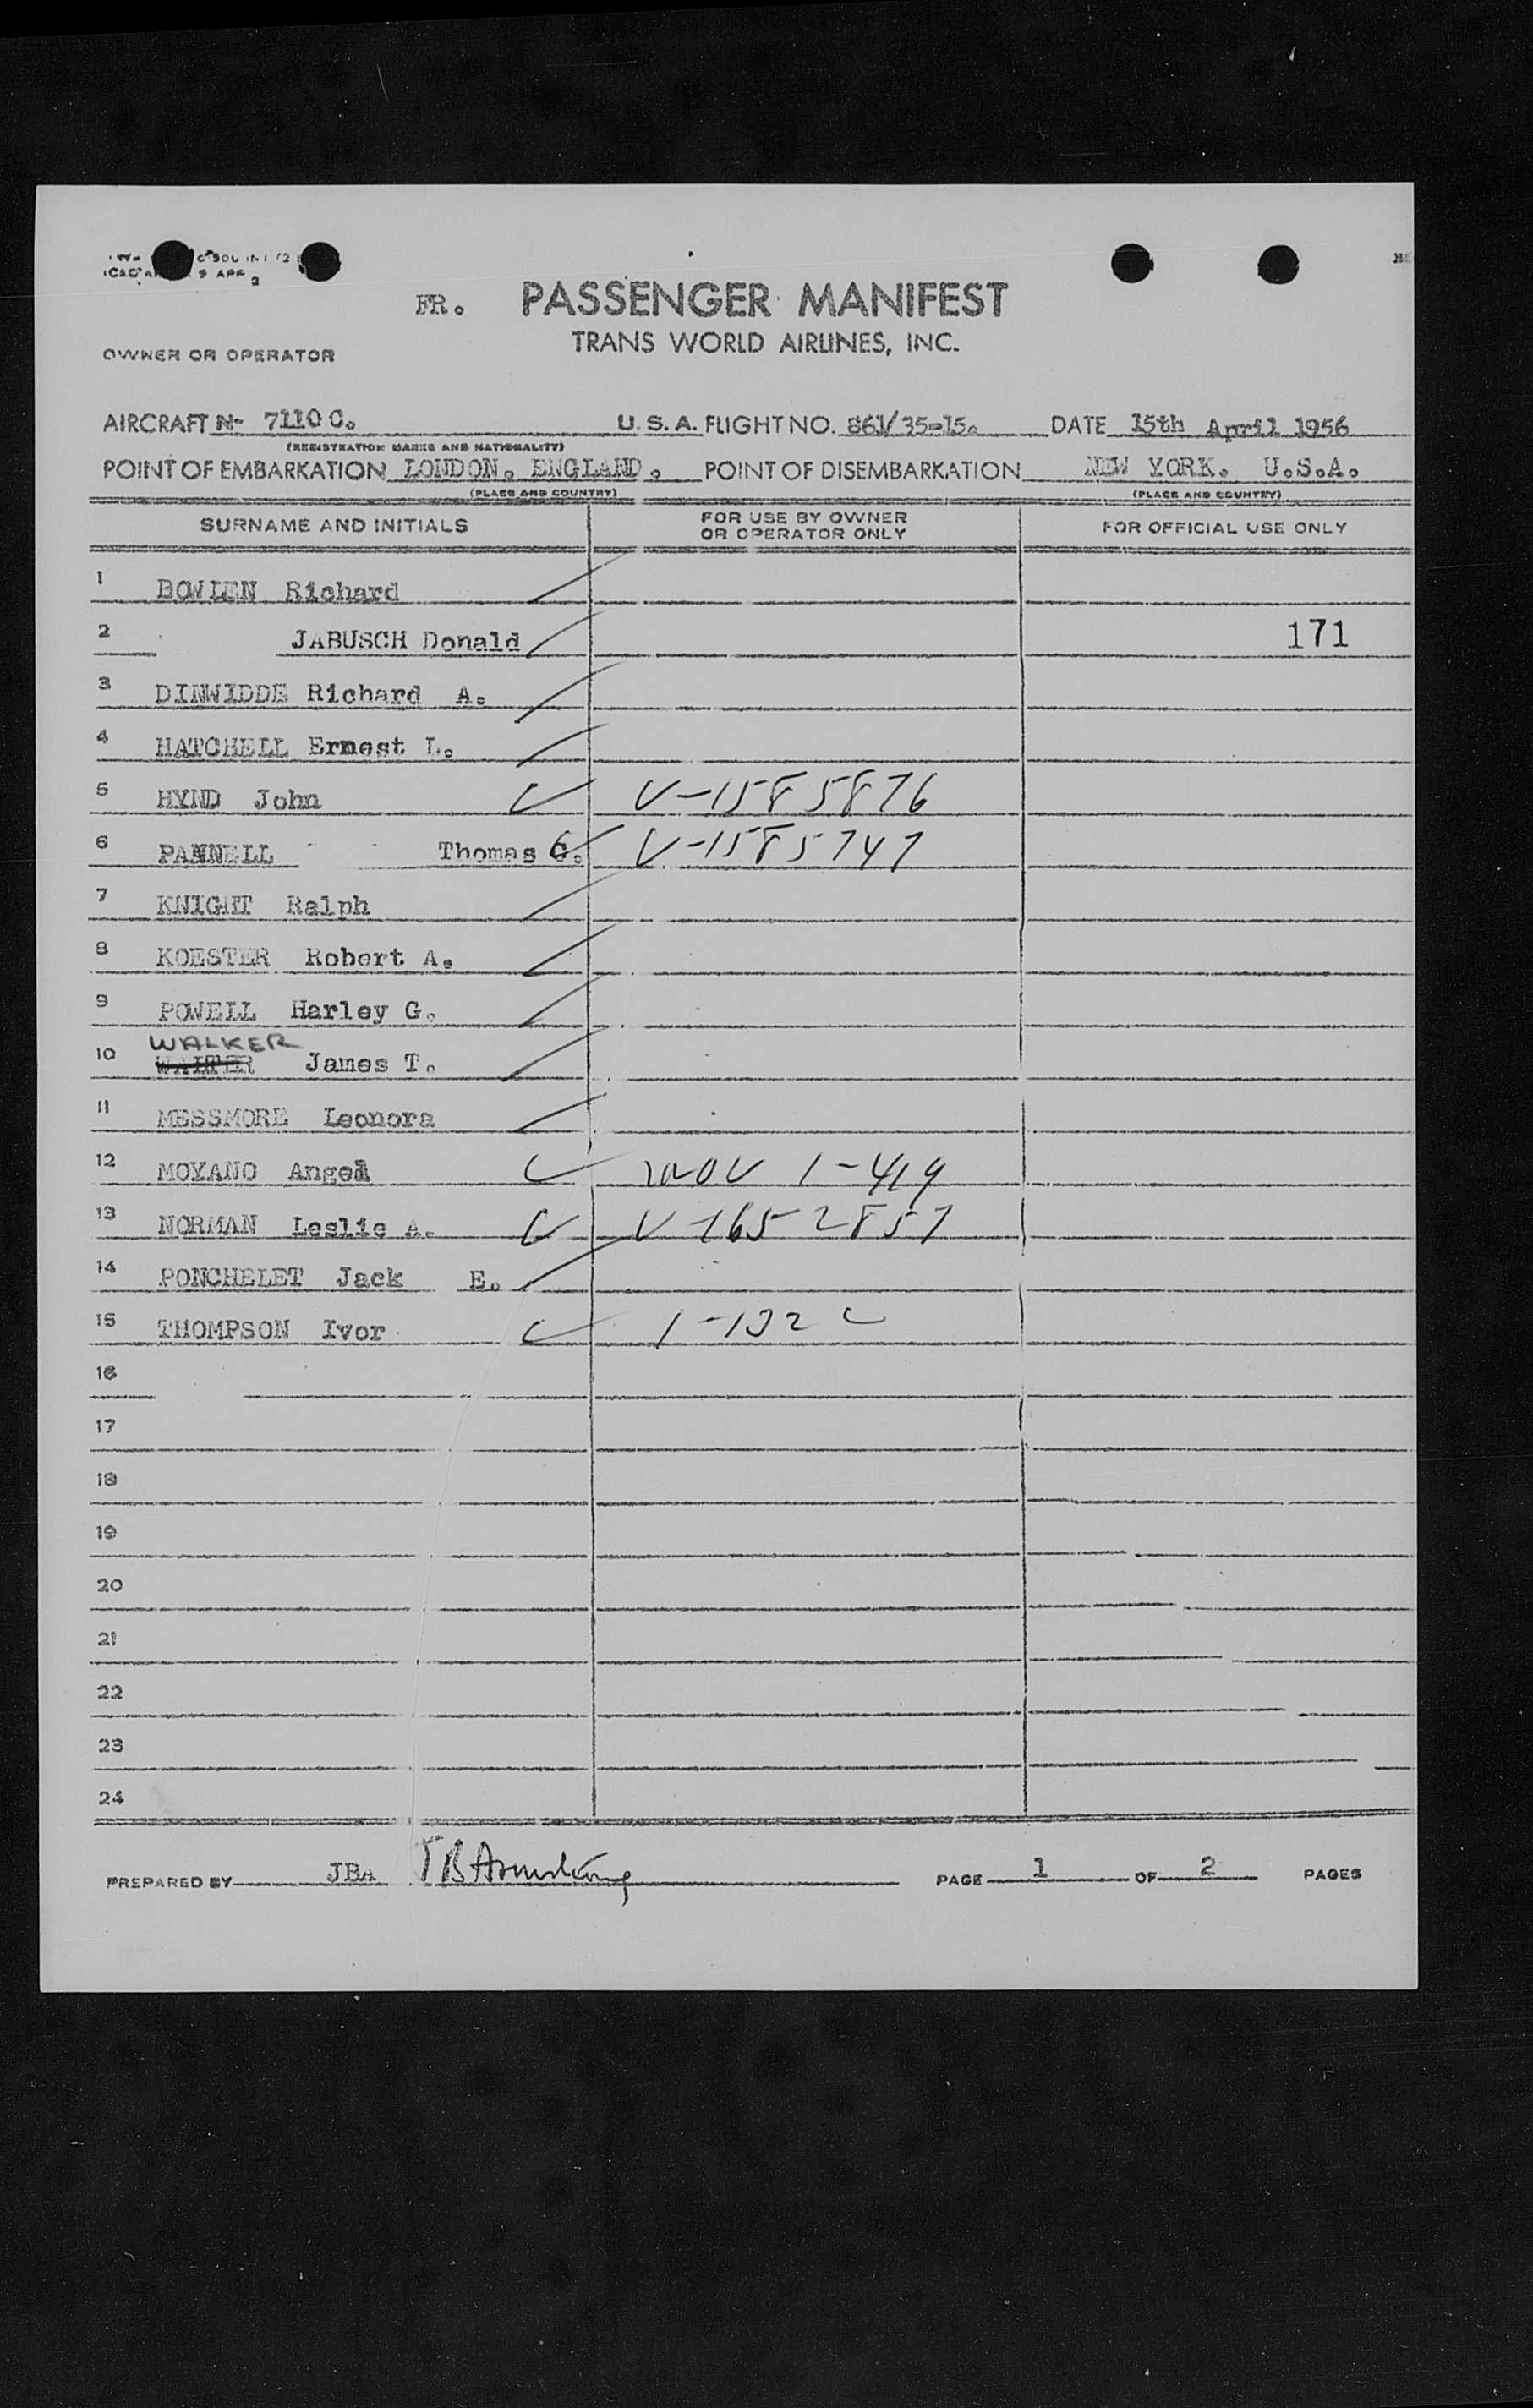 FR. PASSENGER MANIFEST
TRANS WORLD AIRLINES, INC.
OWNER OR OPERATOR
AIRCRAFT N- 7110 C. U.S.A. FLIGHT NO. 861/35-15. DATE 15th April 1956
(REGISTRATION MARKS AND NATIONALITY)
POINT OF EMBARKATION LONDON. ENGLAND. POINT OF DISEMBARKATION NEW YORK. U.S.A.
(PLACE AND COUNTRY) (PLACE AND COUNTRY)
SURNAME AND INITIALS FOR USE BY OWNER OR OPERATOR ONLY FOR OFFICIAL USE ONLY
1 BOWLEN Richard
2 JABUSCH Donald 171
3 DINWIDDE Richard A.
4 HATCHELL Ernest L.
5 HYND John V-1585876
6 PANNELL Thomas G. V-1585747
7 KNIGHT Ralph
8 KOESTER Robert A.
9 POWELL Harley G.
WALKER
10 WALTER James T.
11 MESSMORE Leonora
12 MOYANO Angel 1-419
13 NORMAN Leslie A. V-1652857
14 PONCHELET Jack E.
15 THOMPSON Ivor
16
17
18
19
20
21
22
23
24
PREPARED BY JBA J B Armstrong PAGE 1 OF 2 PAGES